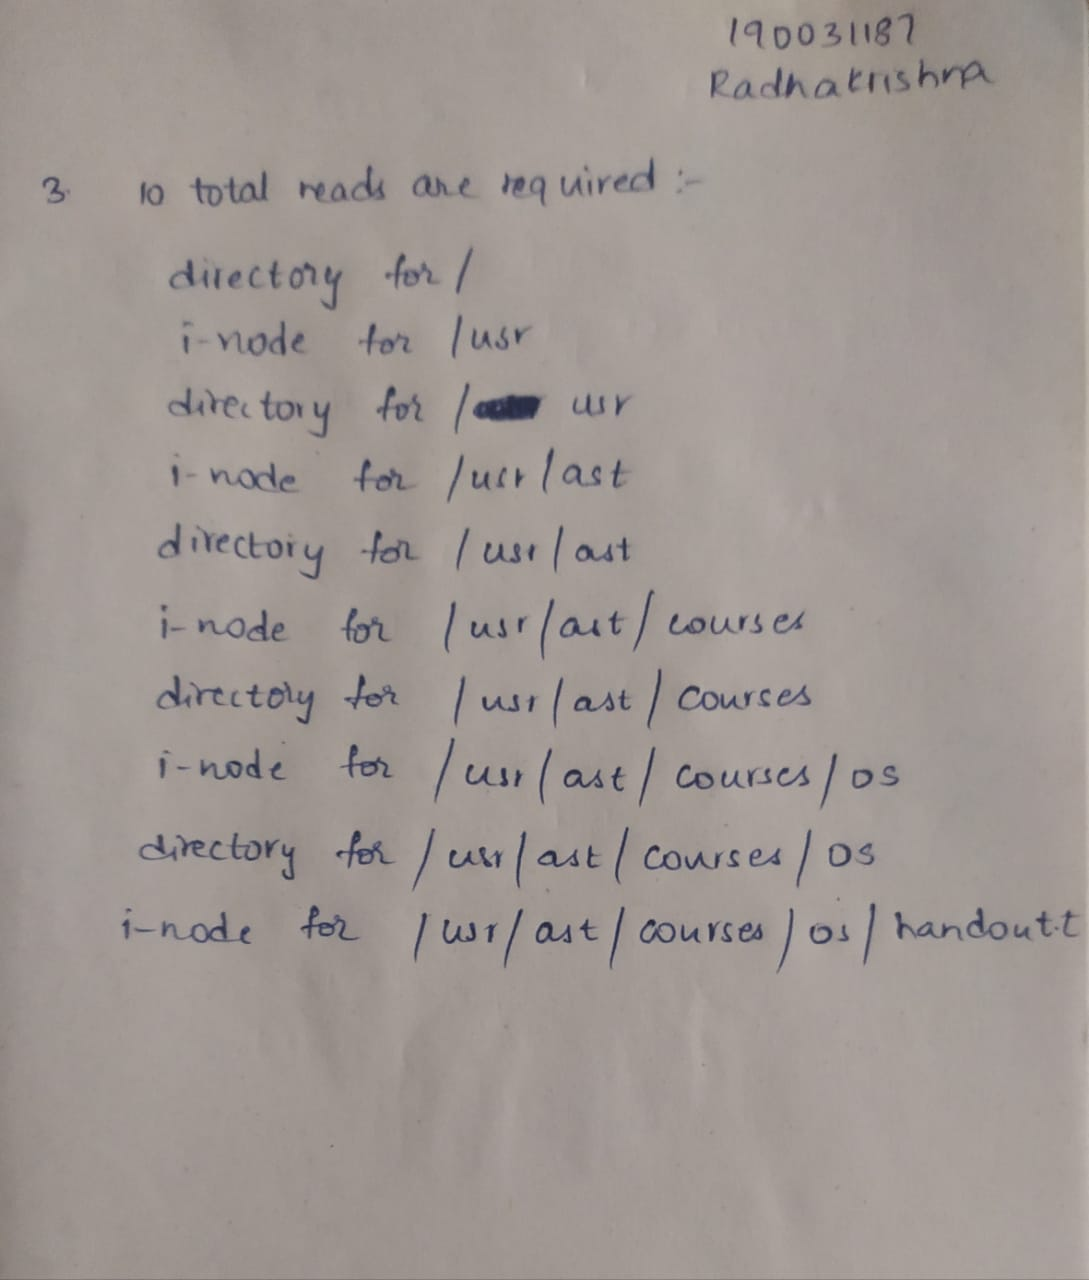 190031187
Radhakrishna
3. 10 total reads are required :-
directory for /
i-node for /usr
directory for / usr
i-node for /usr/ast
directory for /usr/ast
i-node for /usr/ast/courses
directory for /usr/ast/courses
i-node for /usr/ast/courses/os
directory for /usr/ast/courses/os
i-node for /usr/ast/courses/os/handout.t